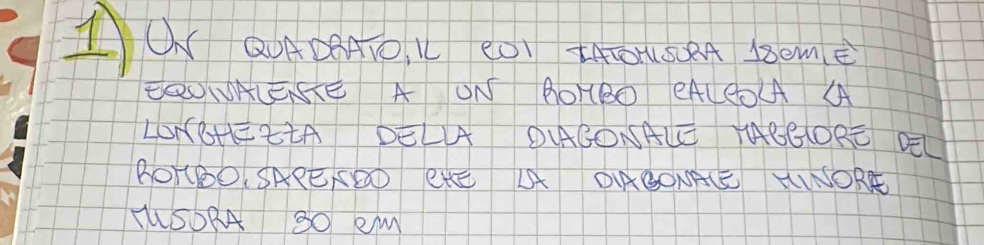 1) UN QUADRATO, IL CUI LATO MISURA 18 cm, È
EQUIVALENTE A UN ROMBO CALCOLA LA
LUNGHEZZA DELLA DIAGONALE MAGGIORE DEL
ROMBO, SAPENDO CHE LA DIAGONALE MINORE
MISURA 30 cm